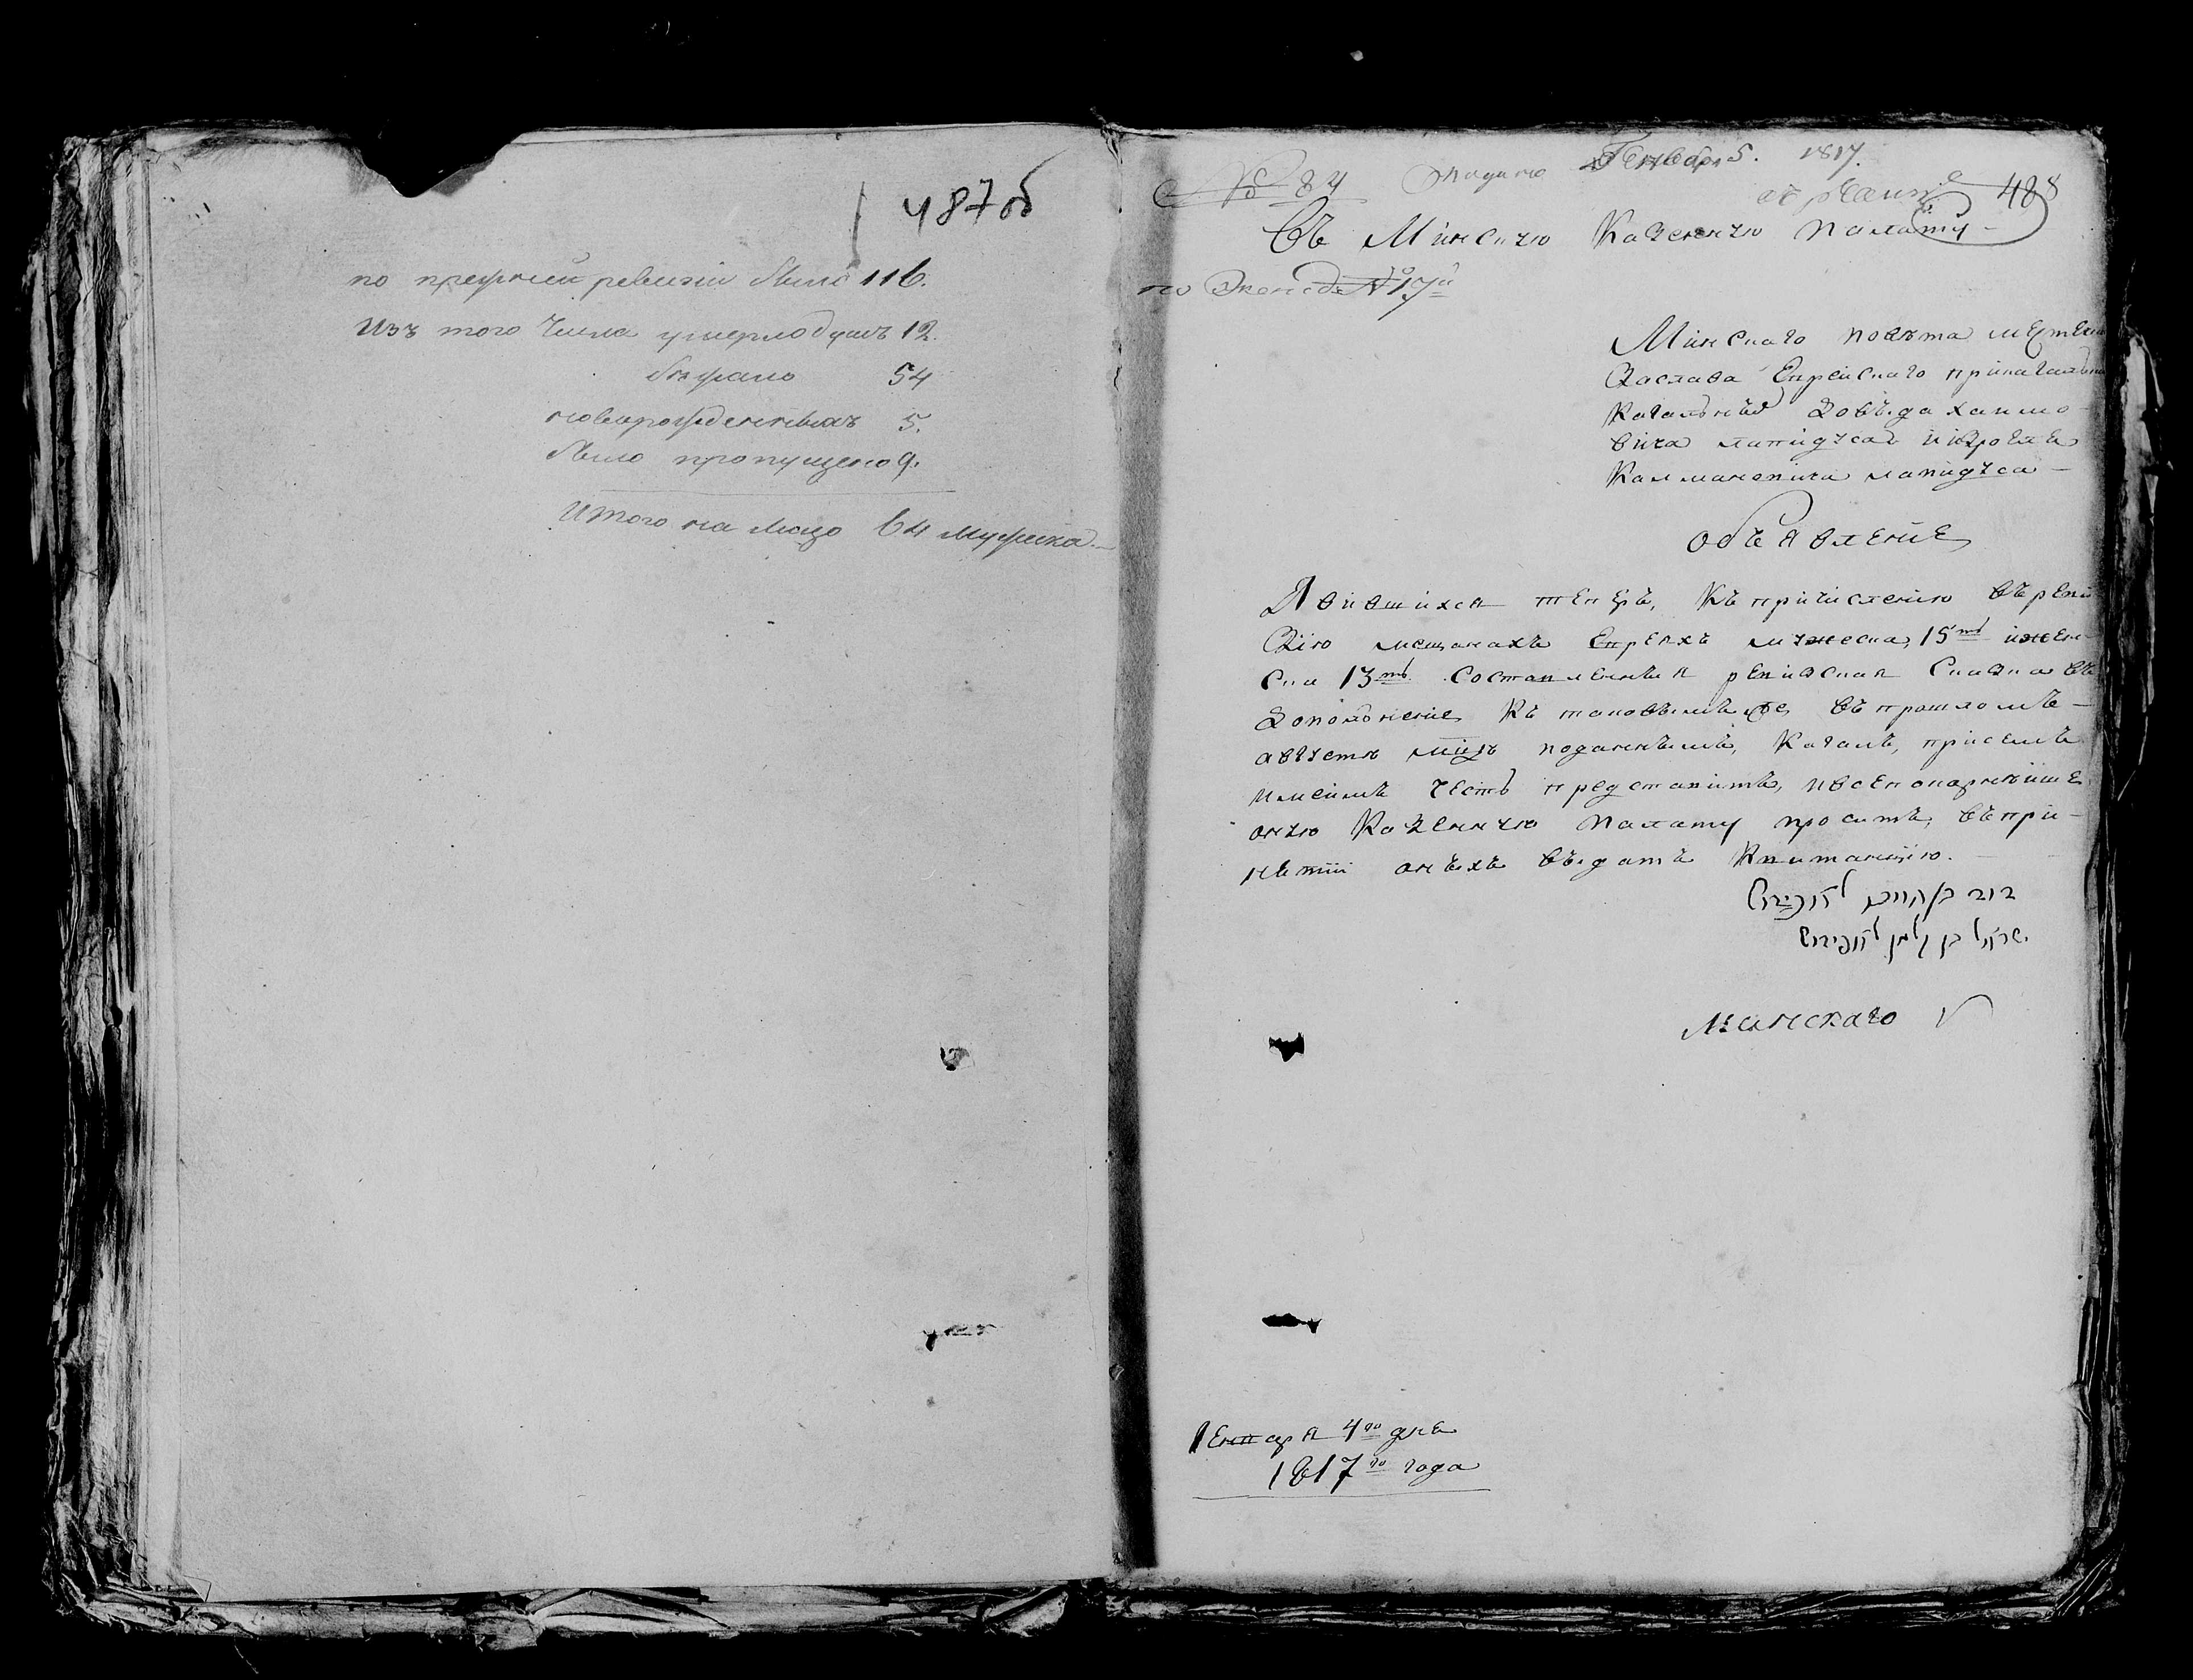 487 об
по прежней ревизіи было 116.
Изъ того числа умерло душъ 12.
бѣжало 54
новорожденныхъ 5.
было пропущено 9.
Итого на лицо 64 мужеска
№ 84 Подано Генваря 5. 1817.
488
Въ Минскую Казенную Палату
по Экспед
Минскаго повѣта мѣстечка
Заслава Еврейскаго прикагалка
Кагальныхъ Довыда Хаимо-
вича Лапидуса и Израеля
Калмановича Лапидуса
Объявленіе
Явившихся теперь, къ причисленію въ реви-
зію мещанахъ Евреяхъ мужеска, 15ть и жен-
ска 13ть составленная ревизская сказка въ
дополненіе къ таковымъ же въ прошломъ
августѣ мцѣ поданнымъ, Кагалъ, при семъ
имеимъ честь представить, и всепокорнейше
оную Казенную Палату просить, въ при-
нятіи оныхъ выдать Квитанцію.
דוד בן חיים לאפידוס
ישראל בן קלמן לאפידוס
Минскаго
Генваря 4го дня
1817го года